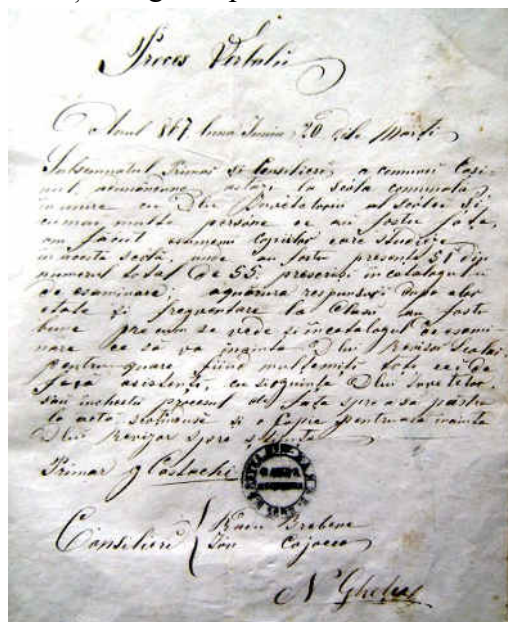 Proces Verbalu
Anul 1867 luna Iunie 20 dile Marți
Subsemnatul Primar și Consilieri a comunei Cosi-
nul, adunându-ne astăzi la școla comunală,
în unire cu Dlu Învețătoru al școlei și
cu mai multe persone ce au fostu față,
am făcut esamenu copiilor care studieze
în acesta școlă, unde au fostu presenți 51 din
numerul total de 55 prescriși în catalogulu
de esaminare; a cărora respunsuri după a lor
etate și frequentare la clasă au fostu
bune precum se vede și în catalogul de esami-
nare ce să va înainta D lui Revizor școlar
pentru quare fiind mulțemiți toți cei de
față asistenți, cu D lui Învețător,
sau încheiatu procesul de față spre a sa păstra
la acta și o copie pentru a înainta
D lui Revizor spre sciință
Primar G Costachi
Consilieri Radu Brebene
Ion Cojocea
N Ghelu